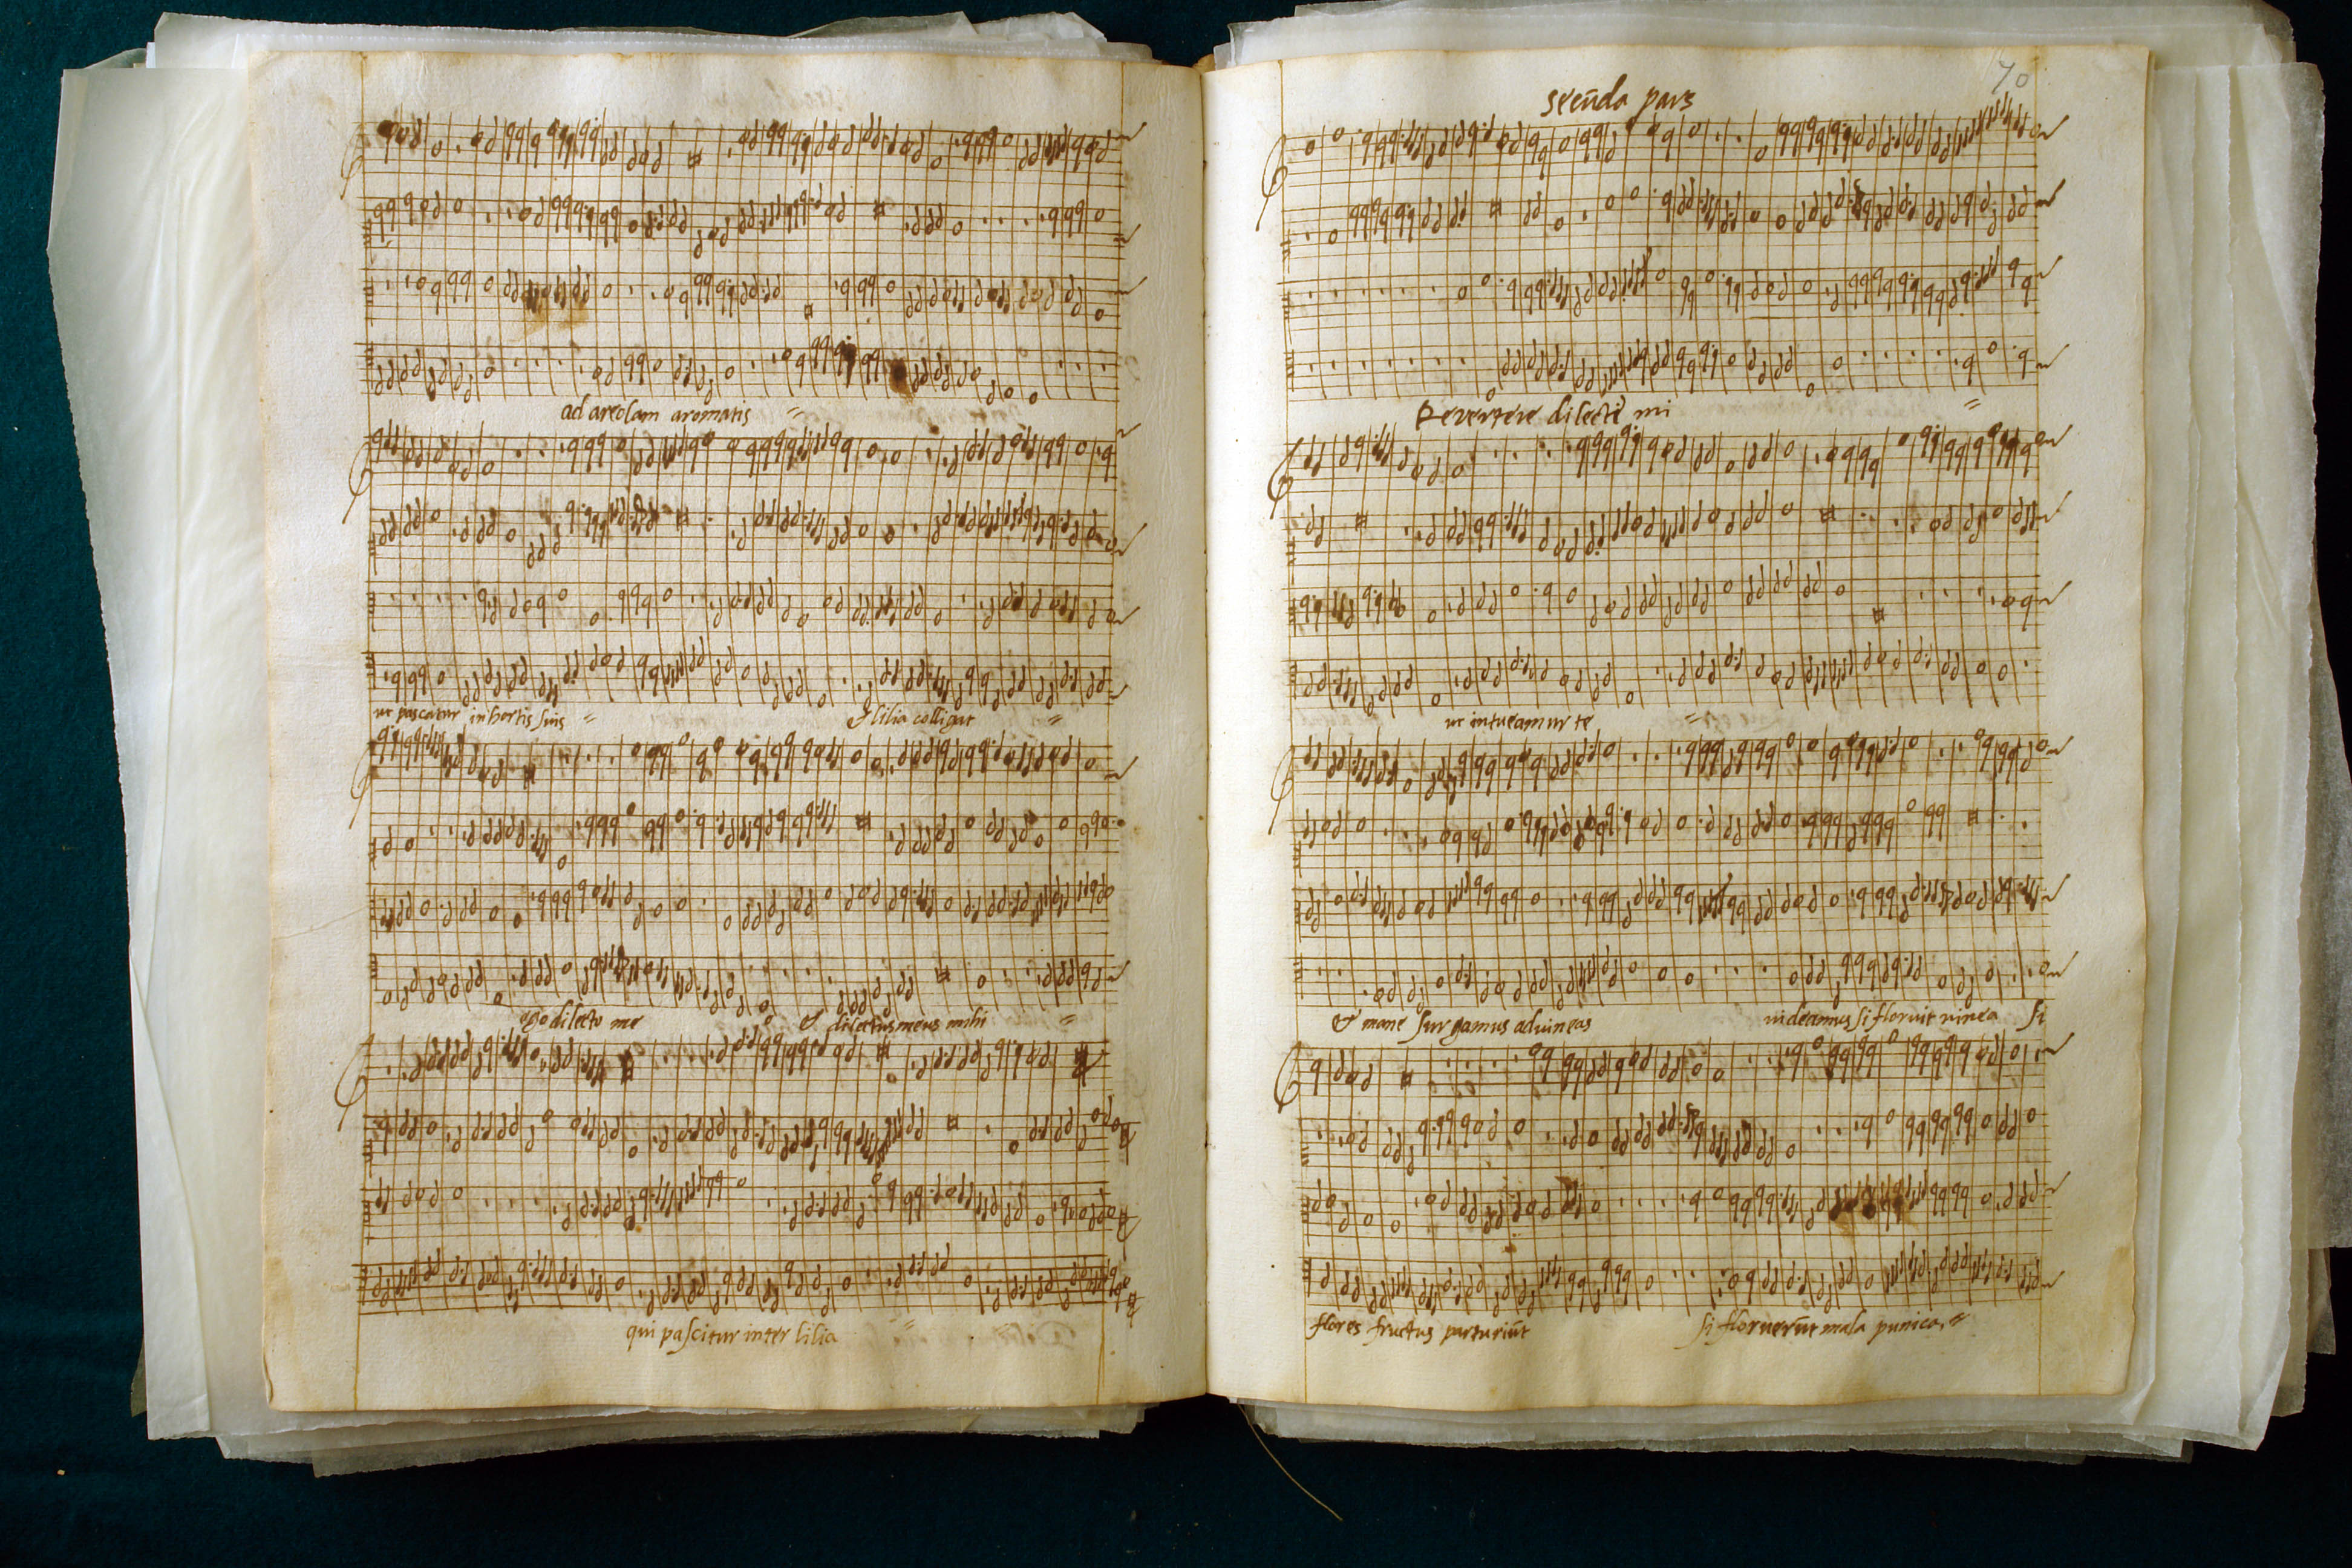 ad areolam aromatis =
ut pascatur in hortis suis = & lilia colligat =
ego dilecto me & dilectus meus mihi =
qui pascitur inter lilia =
70
secūda pars
Revertere dilecte mi =
ut intueamur te =
& mane surgamus ad vineas videamus si floruit vinea si
flores fructus parturiūt si floruerūt mala punica, =